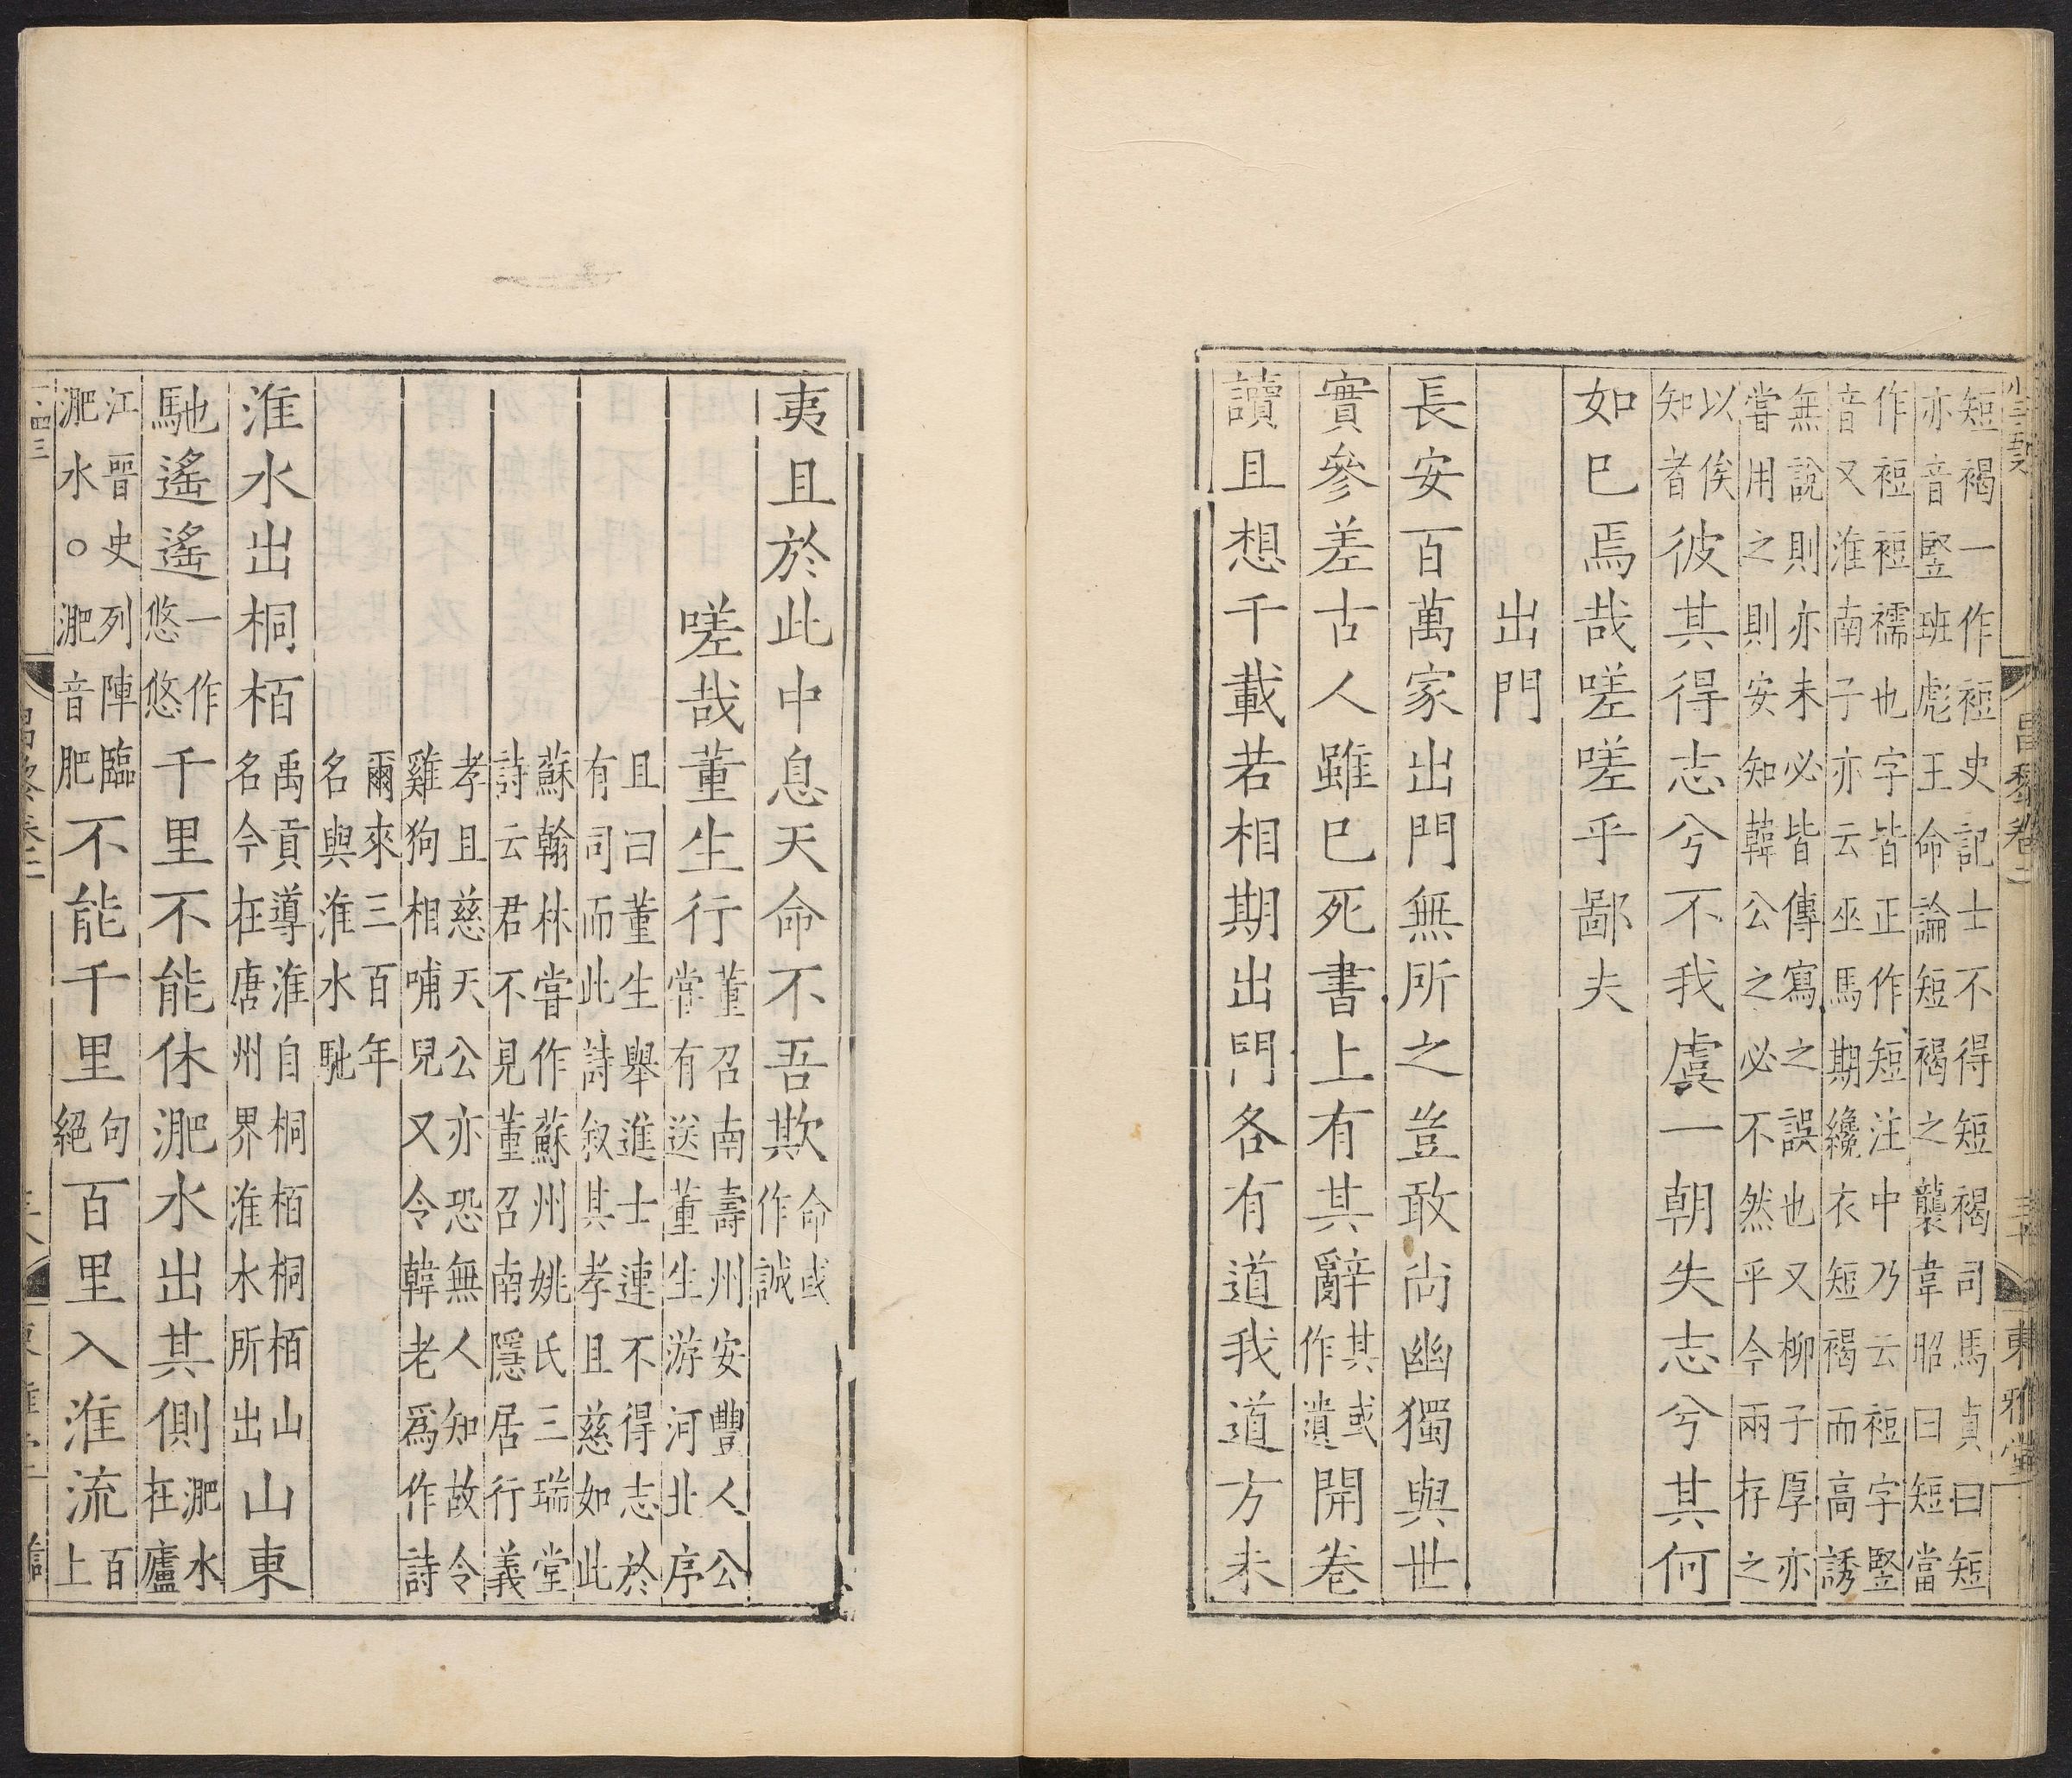 昌黎卷二
東雅堂
短褐一作裋史記士不得短褐司馬貞曰短
亦音豎班彪王命論短褐之襲韋昭曰短當
作裋裋襦也字皆正作短注中乃云裋字豎
音又淮南子亦云巫馬期纔衣短褐而高誘
無說則亦未必皆傳寫之誤也又柳子厚亦
嘗用之則安知韓公之必不然乎今兩存之
以俟知者彼其得志兮不我虞一朝失志兮其何
如巳焉哉嗟嗟乎鄙夫
出門
長安百萬家出門無所之豈敢尚幽獨與世
實參差古人雖巳死書上有其辭其或作遺開卷
讀且想千載若相期出門各有道我道方未
夷且於此中息天命不吾欺命或作誠
嗟哉董生行董召南壽州安豐人公嘗有送董生游河北序
且曰董生舉進士連不得志於
有司而此詩叙其孝且慈如此
蘇翰林嘗作蘇州姚氏三瑞堂
詩云君不見董召南隱居行義
孝且慈天公亦恐無人知故令
雞狗相哺兒又令韓老爲作詩
爾來三百年
名與淮水馳
淮水出桐栢禹貢導淮自桐栢桐栢山名今在唐州界淮水所出山東
馳遙遙一作悠悠千里不能休淝水出其側淝水在廬
江晉史列陣臨淝水。淝音肥不能千里句絕百里入淮流百上